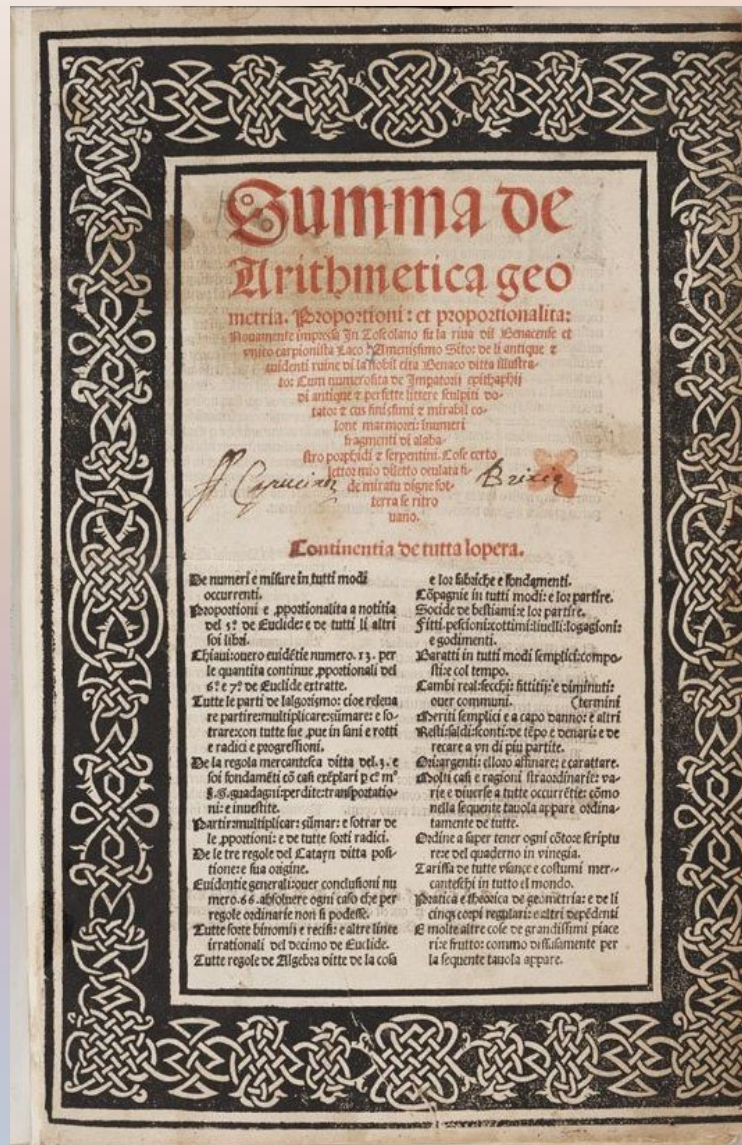 Summa de
Arithmetica geo
metria. Proportioni: et proportionalita:
Nouamente impressa In Toscolano su la riua dil Benacense et
vnico carpionista Laco: Amenissimo Sito: de li antique ⁊
euidenti ruine di la nobil cita Benaco ditta illustra-
to: Cum numerosita de Impatorij epithaphij
di antique ⁊ perfette littere sculpiti do-
tato: ⁊ cus finissimi ⁊ mirabil co-
lone marmorei: inumeri
fragmenti di alaba-
stro porphidi ⁊ serpentini. Cose certo
lettor mio diletto oculata fi-
de miratu digne sot-
terra se ritro
uano.
Continentia de tutta lopera.
De numeri e misure in tutti modi
occurrenti.
Proportioni e ꝓportionalita a notitia
del 5º de Euclide: e de tutti li altri
soi libri.
Chiaui: ouero euidētie numero. 13. per
le quantita continue ꝓportionali del
6º e 7º de Euclide extratte.
Tutte le parti de lalgorismo: cioe releua
re partire: multiplicare: sūmare: e so-
trare: con tutte sue ꝓue in sani e rotti
e radici e progressioni.
De la regola mercantesca ditta del .3. e
soi fondamēti cō casi exēplari ꝑ
guadagni: perdite: transportatio-
ni: e inuestite.
Partir: multiplicar: sūmar: e sotrar de
le ꝓportioni: e de tutte sorti radici.
De le tre regole del Catayn ditta posi-
tione: e sua origine.
Euidentie generali: ouer conclusioni nu
mero. 66. absoluere ogni caso che per
regole ordinarie non si podesse.
Tutte sorte binomij e recisi: e altre linee
irrationali del decimo de Euclide.
Tutte regole de Algebra ditte de la cosa
e lor fabriche e fondamenti.
Cōpagnie in tutti modi: e lor partire.
Socide de bestiami: e lor partire.
Fitti: pescioni: cottimi: liuelli: logagioni:
e godimenti.
Baratti in tutti modi semplici: compo-
sti: e col tempo.
Cambi reali: secchi: fittitij: e diminuti:
ouer communi. (termini
Meriti semplici e a capo danno: e altri
Resti: saldi: sconti: de tēpo e denari: e de
recare a vn di piu partite.
Ori: argenti: e lloro affinare: e carattare.
Molti casi e ragioni straordinarie: va-
rie e diuerse a tutte occurrētie: cōmo
nella sequente tauola appare ordina-
tamente de tutte.
Ordine a saper tener ogni cōto: e scriptu
re: e del quaderno in vinegia.
Tariffa de tutte vsançe e costumi mer-
canteschi in tutto el mondo.
Pratica e theorica de geometria: e de li
cinqȝ corpi regulari: e altri depēdenti
E molte altre cose de grandissimi piace
ri: e frutto: commo diffusamente per
la sequente tauola appare.